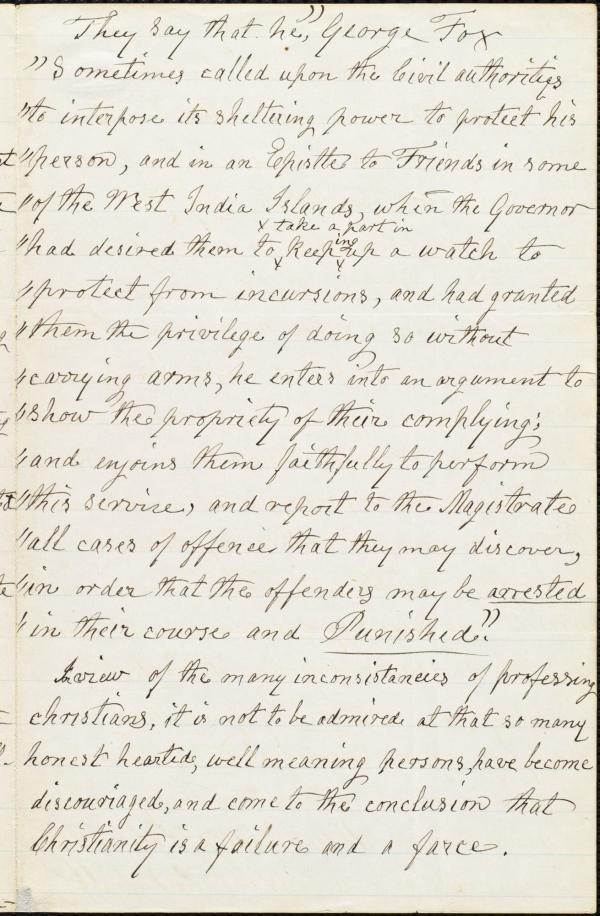 They say that he," George Fox
"Sometimes called upon the Civil authorities
"to interpose its sheltering power to protect his
"person, and in an Epistle to Friends in some
"of the West India Islands, when the Governor
x take a part in
"had desired them to x keeping up a watch to
"protect from incursions, and had granted
"them the privilege of doing so without
"carrying arms, he enters into an argument to
"show the propriety of their complying;
"and enjoins them faithfully to perform
"this service, and report to the Magistrate
"all cases of offence that they may discover,
"in order that the offenders may be arrested
"in their course and Punished."
In view of the many inconsistancies of professing
christians, it is not to be admired at that so many
honest hearted, well meaning persons, have become
discouriaged, and come to the conclusion that
Christianity is a failure and a farce.